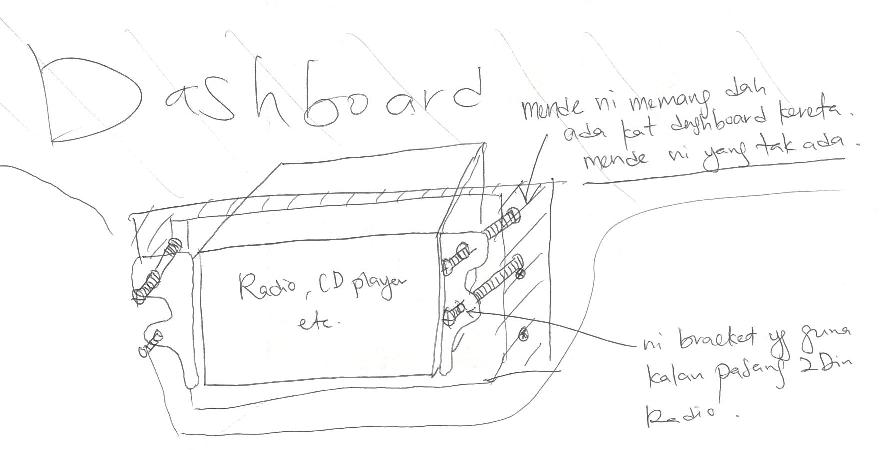 Dashboard
mende ni memang dah
ada kat dashboard kereta.
mende ni yang tak ada.
Radio, CD player
etc.
ni bracket yg guna
kalau pasang 2Din
Radio.